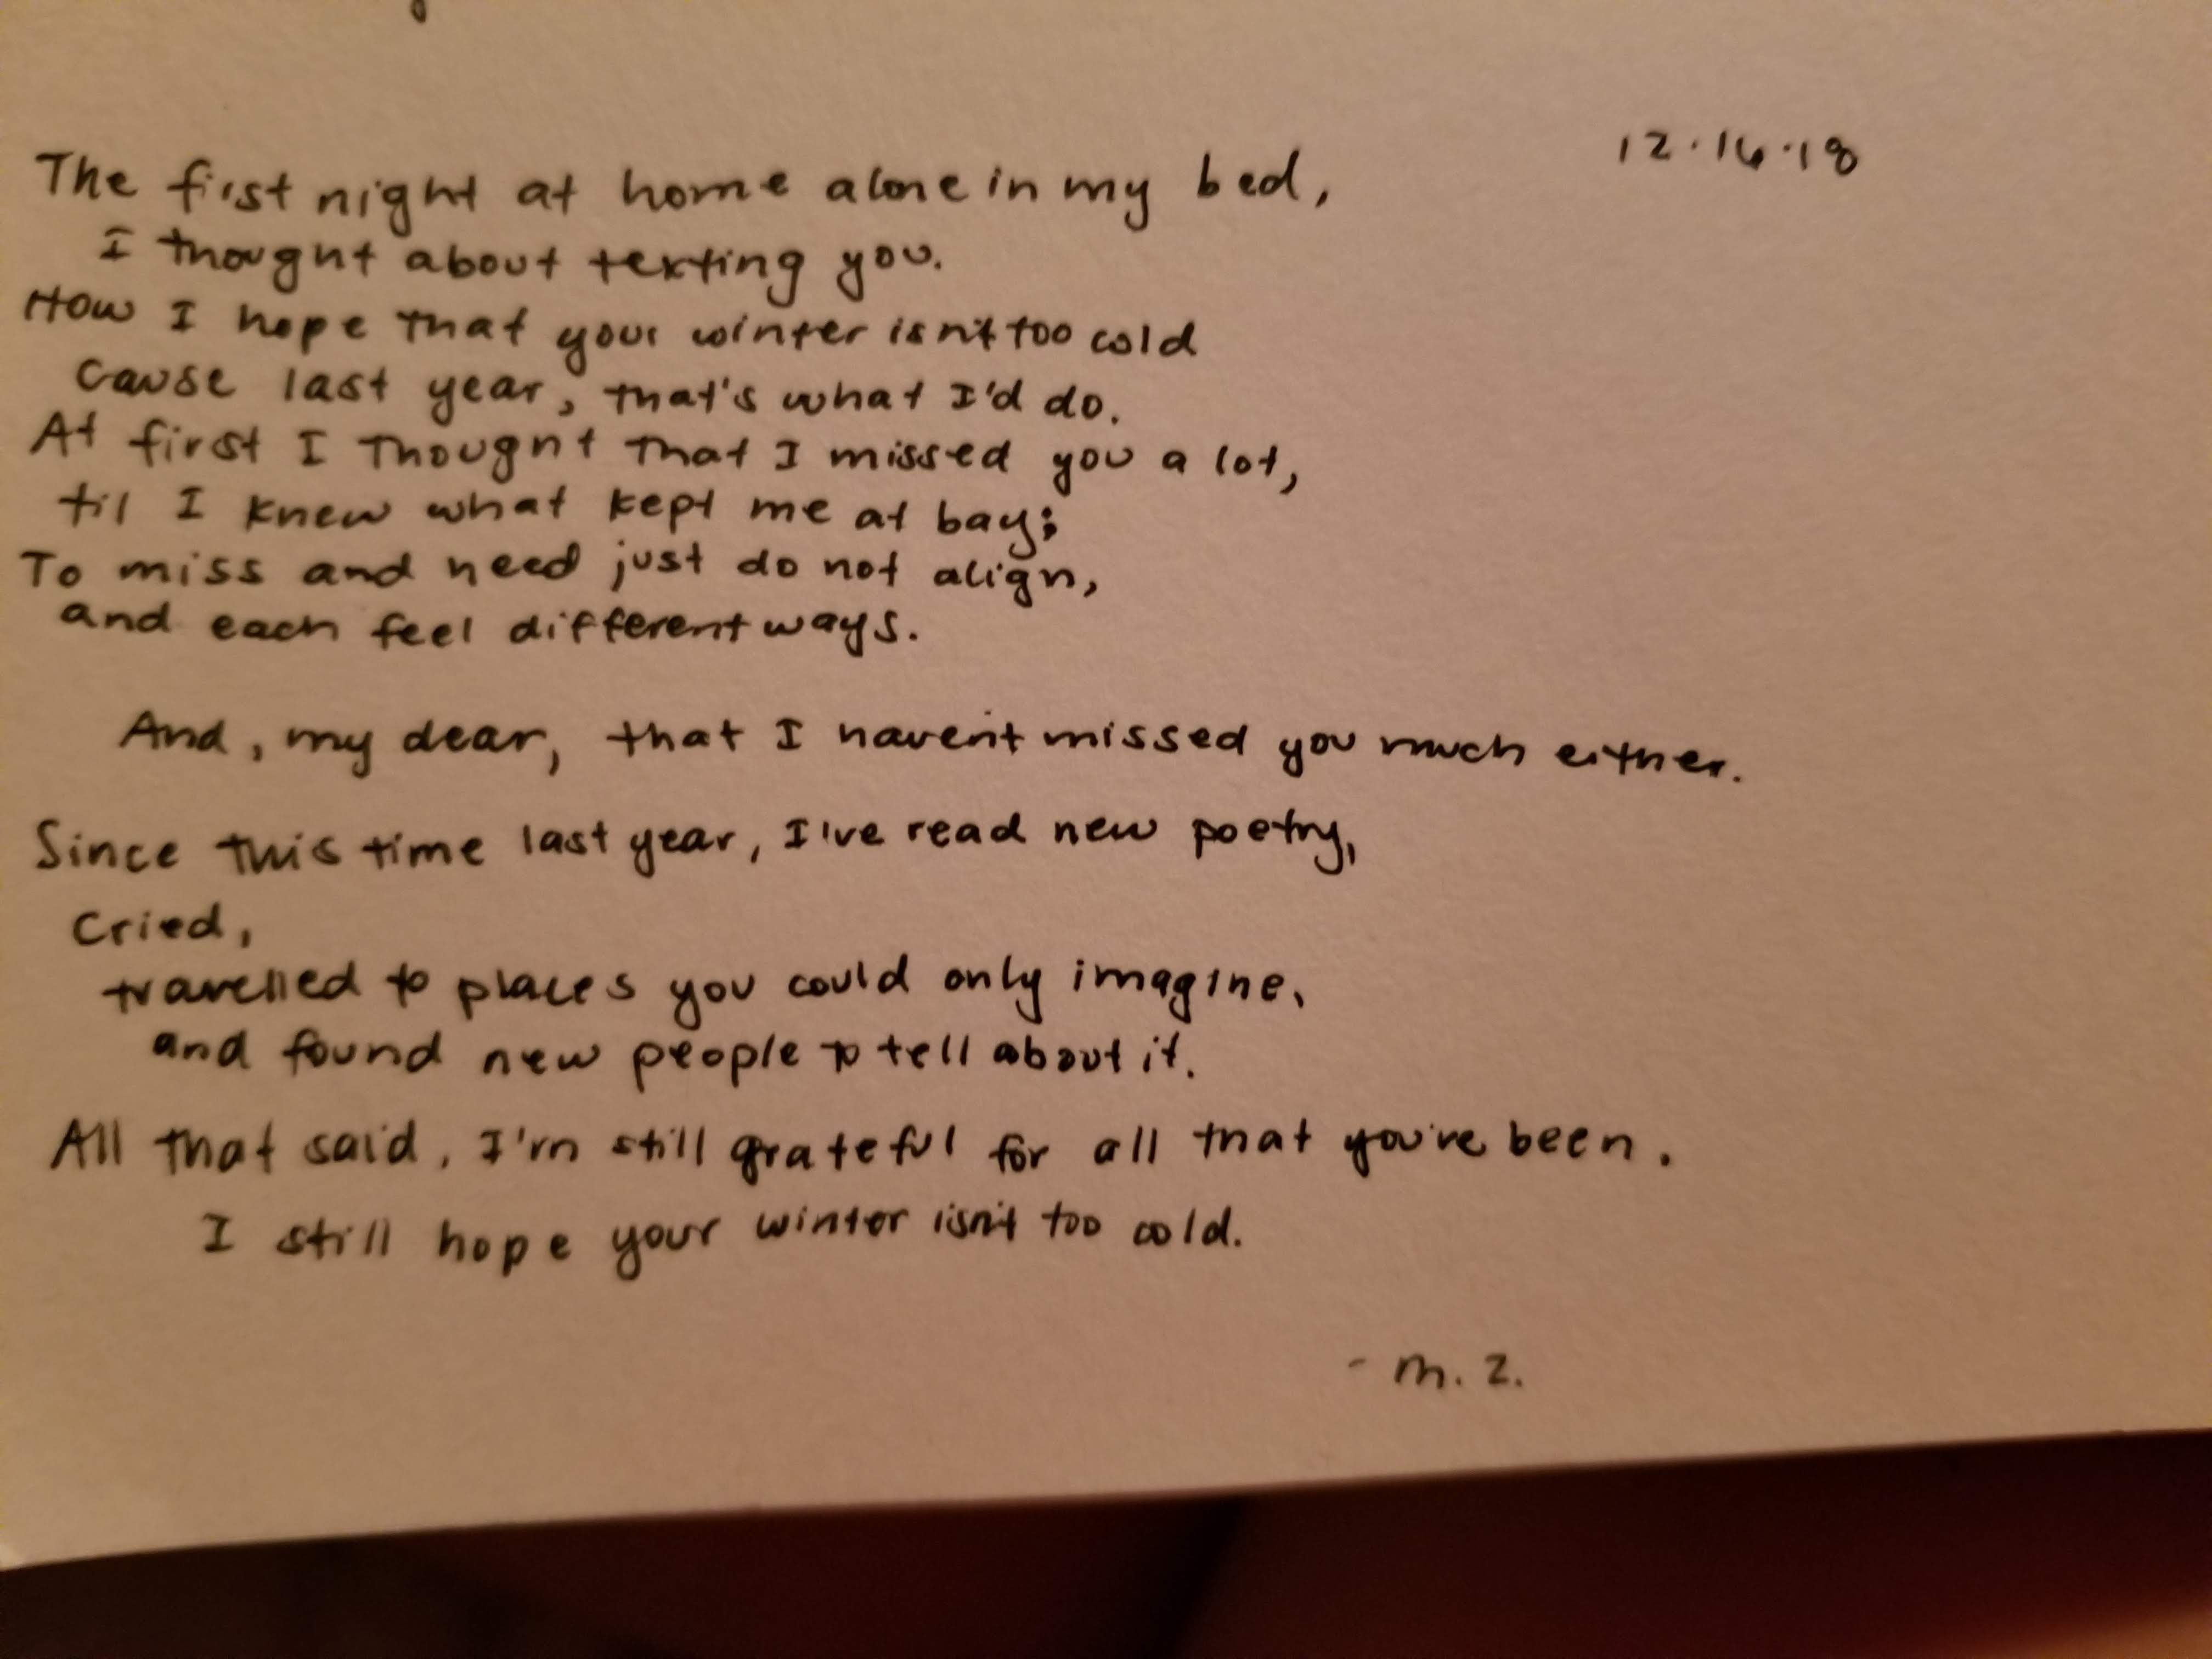 12.16.18
The first night at home alone in my bed,
I thought about texting you.
How I hope that your winter isn't too cold
Cause last year, that's what I'd do.
At first I thought that I missed you a lot,
til I knew what kept me at bay;
To miss and need just do not align,
and each feel different ways.
And, my dear, that I haven't missed you much either.
Since this time last year, I've read new poetry,
Cried,
travelled to places you could only imagine,
and found new people to tell about it.
All that said, I'm still grateful for all that you've been.
I still hope your winter isn't too cold.
- M. Z.